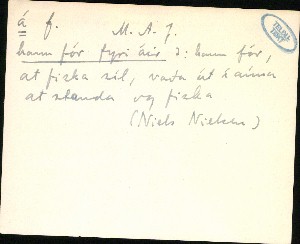 á f. M. A. J.
TILFAR TIKIÐ
hann fór fyri áir ɔ: hann fór,
at fiska síl, vada út í ánna
at standa og fiska
(Niels Nielsen)